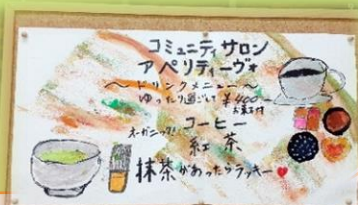 コミュニティサロン
アペリティーヴォ
〜ドリンクメニュー〜
ゆったり過ごして ¥400
お菓子付
オーガニック!! コーヒー
紅茶
抹茶があったらラッキー